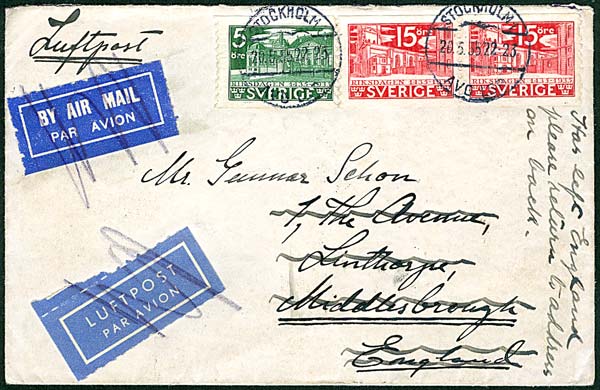 Luftpost
BY AIR MAIL
PAR AVION
5 öre
RIKSDAGEN 1435-1935
SVERIGE
15 öre
RIKSDAGEN 1435-1935
SVERIGE
15 öre
RIKSDAGEN 1435-1935
SVERIGE
STOCKHOLM
20.5.35 22-23
STOCKHOLM
20.5.35 22-23
AVG
Mr. Gunnar Schon
7, The Avenue,
Linthorpe,
Middlesbrough
England
Has left England
please return to address
on back.
LUFTPOST
PAR AVION